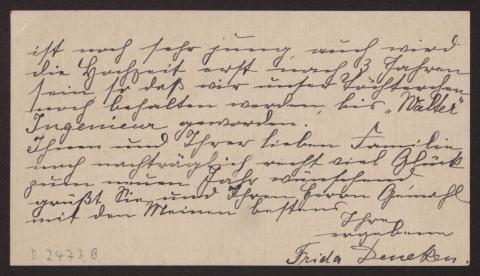 ist noch sehr jung, auch wird
die Hochzeit erst nach 3 Jahren
sein so daß wir unser Töchterchen
noch behalten werden, bis „Walter"
Ingenieur geworden.
Ihnen und Ihrer lieben Familie
noch nachträglich recht viel Glück
zum neuen Jahr wünschend
grüßt Sie und Ihren Herrn Gemahl
mit den Meinen bestens
Ihre
ergebene
Frida Deneken.
D. 2473, B